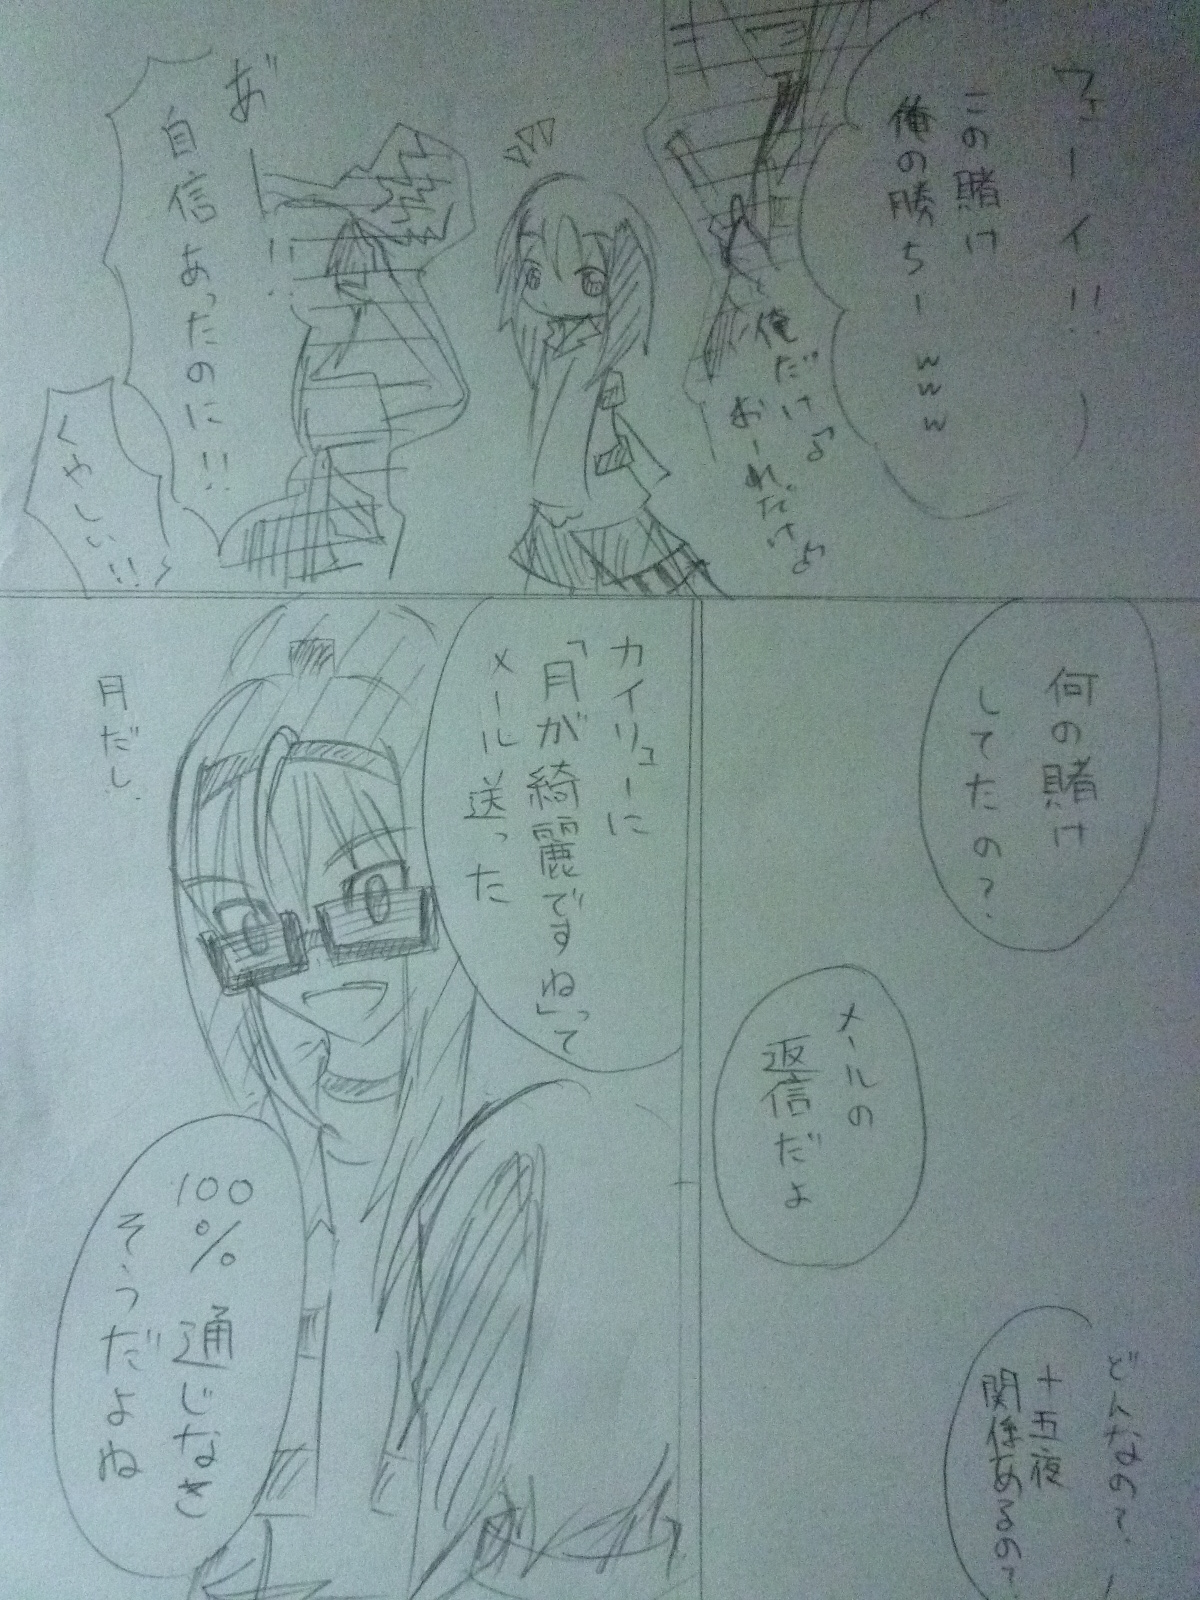 ウェーイ!!
この賭け
俺の勝ちーwww
俺だけ♪
おーれだけ♪
あ゛ー!!
自信あったのに!!
くやしい!!
何の賭け
してたの?
メールの
返信だよ
どんなの?
十五夜
関係あるの?
カイリューに
「月が綺麗ですね」って
メール送った
月だし
100%通じなさ
そうだよね